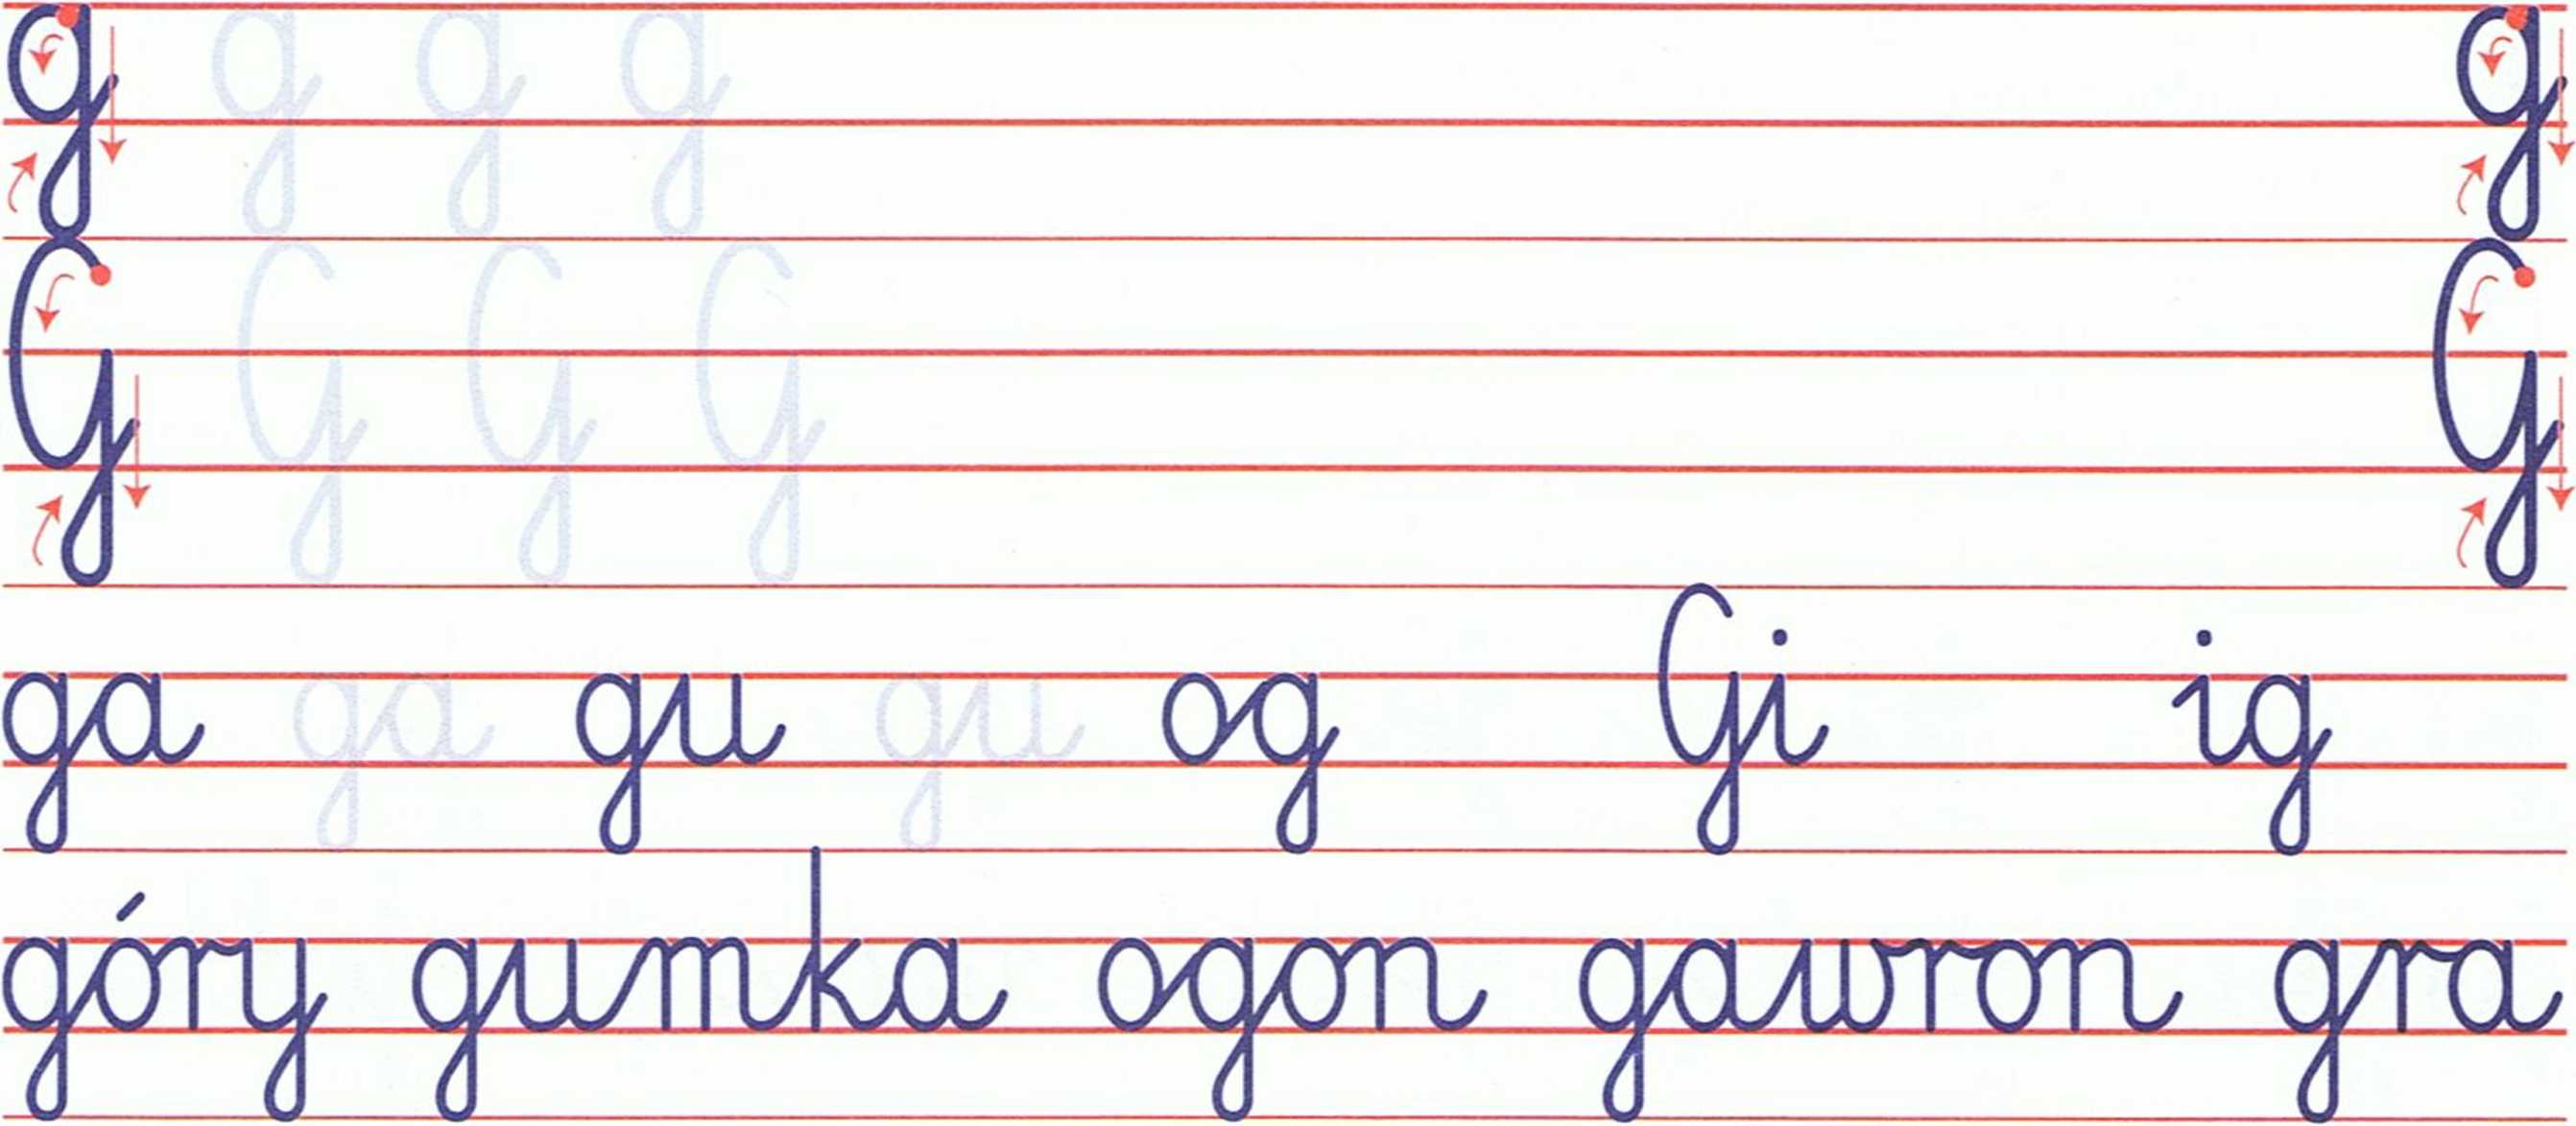 g g g g g
G G G G G
ga ga gu gu og Gi ig
góry gumka ogon gawron gra